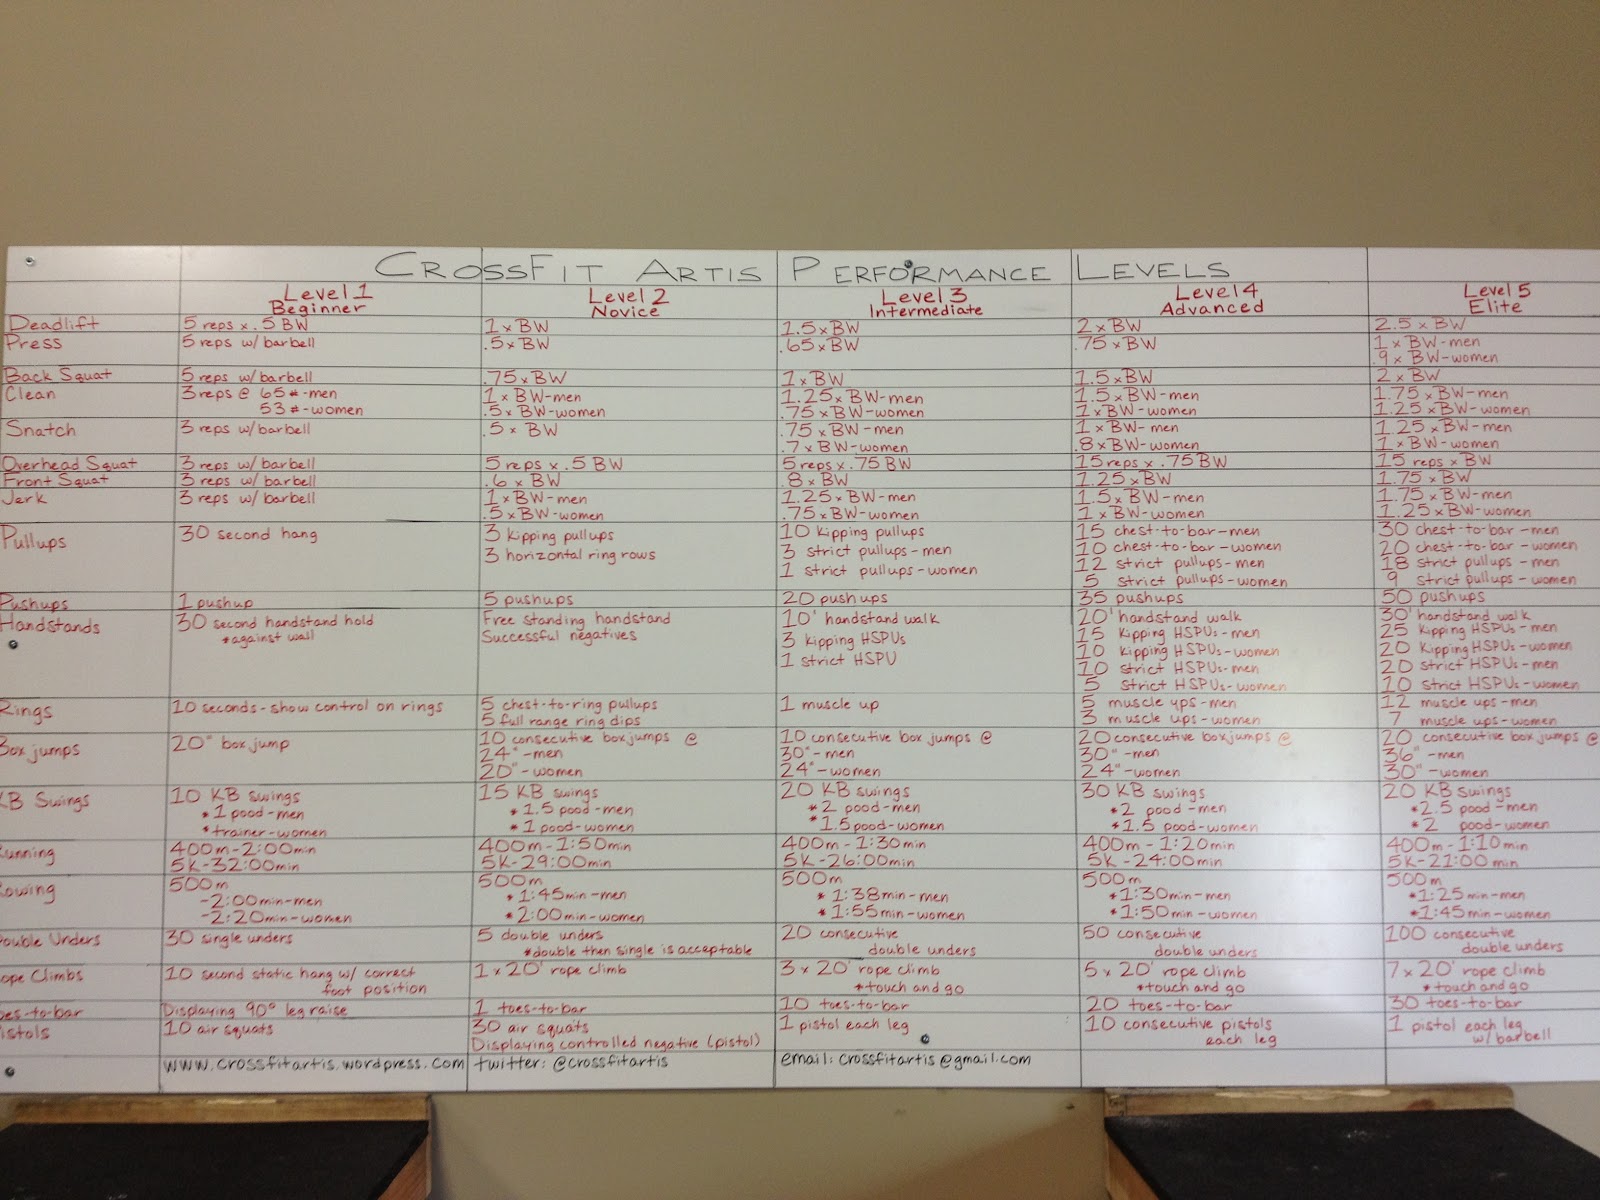 CROSSFIT ARTIS PERFORMANCE LEVELS
Level 1 Level 2 Level 3 Level 4 Level 5
Beginner Novice Intermediate Advanced Elite
Deadlift 5 reps x .5 BW 1 x BW 1.5 x BW 2 x BW 2.5 x BW
Press 5 reps w/ barbell .5 x BW .65 x BW .75 x BW 1 x BW-men
.9 x BW-women
Back Squat 5 reps w/ barbell .75 x BW 1 x BW 1.5 x BW 2 x BW
Clean 3 reps @ 65#-men 1 x BW-men 1.25 x BW-men 1.5 x BW-men 1.75 x BW-men
53#-women .5 x BW-women .75 x BW-women 1 x BW-women 1.25 x BW-women
Snatch 3 reps w/ barbell .5 x BW .75 x BW-men 1 x BW-men 1.25 x BW-men
.7 x BW-women .8 x BW-women 1 x BW-women
Overhead Squat 3 reps w/ barbell 5 reps x .5 BW 5 reps x .75 BW 15 reps x .75 BW 15 reps x BW
Front Squat 3 reps w/ barbell .6 x BW .8 x BW 1.25 x BW 1.75 x BW
Jerk 3 reps w/ barbell 1 x BW-men 1.25 x BW-men 1.5 x BW-men 1.75 x BW-men
.5 x BW-women .75 x BW-women 1 x BW-women 1.25 x BW-women
Pullups 30 second hang 3 kipping pullups 10 kipping pullups 15 chest-to-bar-men 30 chest-to-bar-men
3 horizontal ring rows 3 strict pullups-men 10 chest-to-bar-women 20 chest-to-bar-women
1 strict pullups-women 12 strict pullups-men 18 strict pullups-men
5 strict pullups-women 9 strict pullups-women
Pushups 1 pushup 5 pushups 20 pushups 35 pushups 50 pushups
Handstands 30 second handstand hold Free standing handstand 10' handstand walk 20' handstand walk 30' handstand walk
*against wall Successful negatives 3 kipping HSPUs 15 kipping HSPUs-men 25 kipping HSPUs-men
1 strict HSPU 10 kipping HSPUs-women 20 kipping HSPUs-women
10 strict HSPUs-men 20 strict HSPUs-men
5 strict HSPUs-women 10 strict HSPUs-women
Rings 10 seconds-show control on rings 5 chest-to-ring pullups 1 muscle up 5 muscle ups-men 12 muscle ups-men
5 full range ring dips 3 muscle ups-women 7 muscle ups-women
Box jumps 20" box jump 10 consecutive box jumps @ 10 consecutive box jumps @ 20 consecutive box jumps @ 20 consecutive box jumps @
24"-men 30"-men 30"-men 36"-men
20"-women 24"-women 24"-women 30"-women
KB Swings 10 KB swings 15 KB swings 20 KB swings 30 KB swings 20 KB swings
*1 pood-men *1.5 pood-men *2 pood-men *2 pood-men *2.5 pood-men
*trainer-women *1 pood-women *1.5 pood-women *1.5 pood-women *2 pood-women
unning 400m-2:00min 400m-1:50min 400m-1:30min 400m-1:20min 400m-1:10min
5K-32:00min 5K-29:00min 5K-26:00min 5K-24:00min 5K-21:00min
owing 500m 500m 500m 500m 500m
-2:00min-men *1:45min-men *1:38min-men *1:30min-men *1:25min-men
-2:20min-women *2:00min-women *1:55min-women *1:50min-women *1:45min-women
ouble Unders 30 single unders 5 double unders 20 consecutive 50 consecutive 100 consecutive
*double then single is acceptable double unders double unders double unders
ope Climbs 10 second static hang w/ correct 1 x 20' rope climb 3 x 20' rope climb 5 x 20' rope climb 7 x 20' rope climb
foot position *touch and go *touch and go *touch and go
oes-to-bar Displaying 90° leg raise 1 toes-to-bar 10 toes-to-bar 20 toes-to-bar 30 toes-to-bar
istols 10 air squats 30 air squats 1 pistol each leg 10 consecutive pistols 1 pistol each leg
Displaying controlled negative (pistol) each leg w/ barbell
www.crossfitartis.wordpress.com twitter: @crossfitartis email: crossfitartis@gmail.com